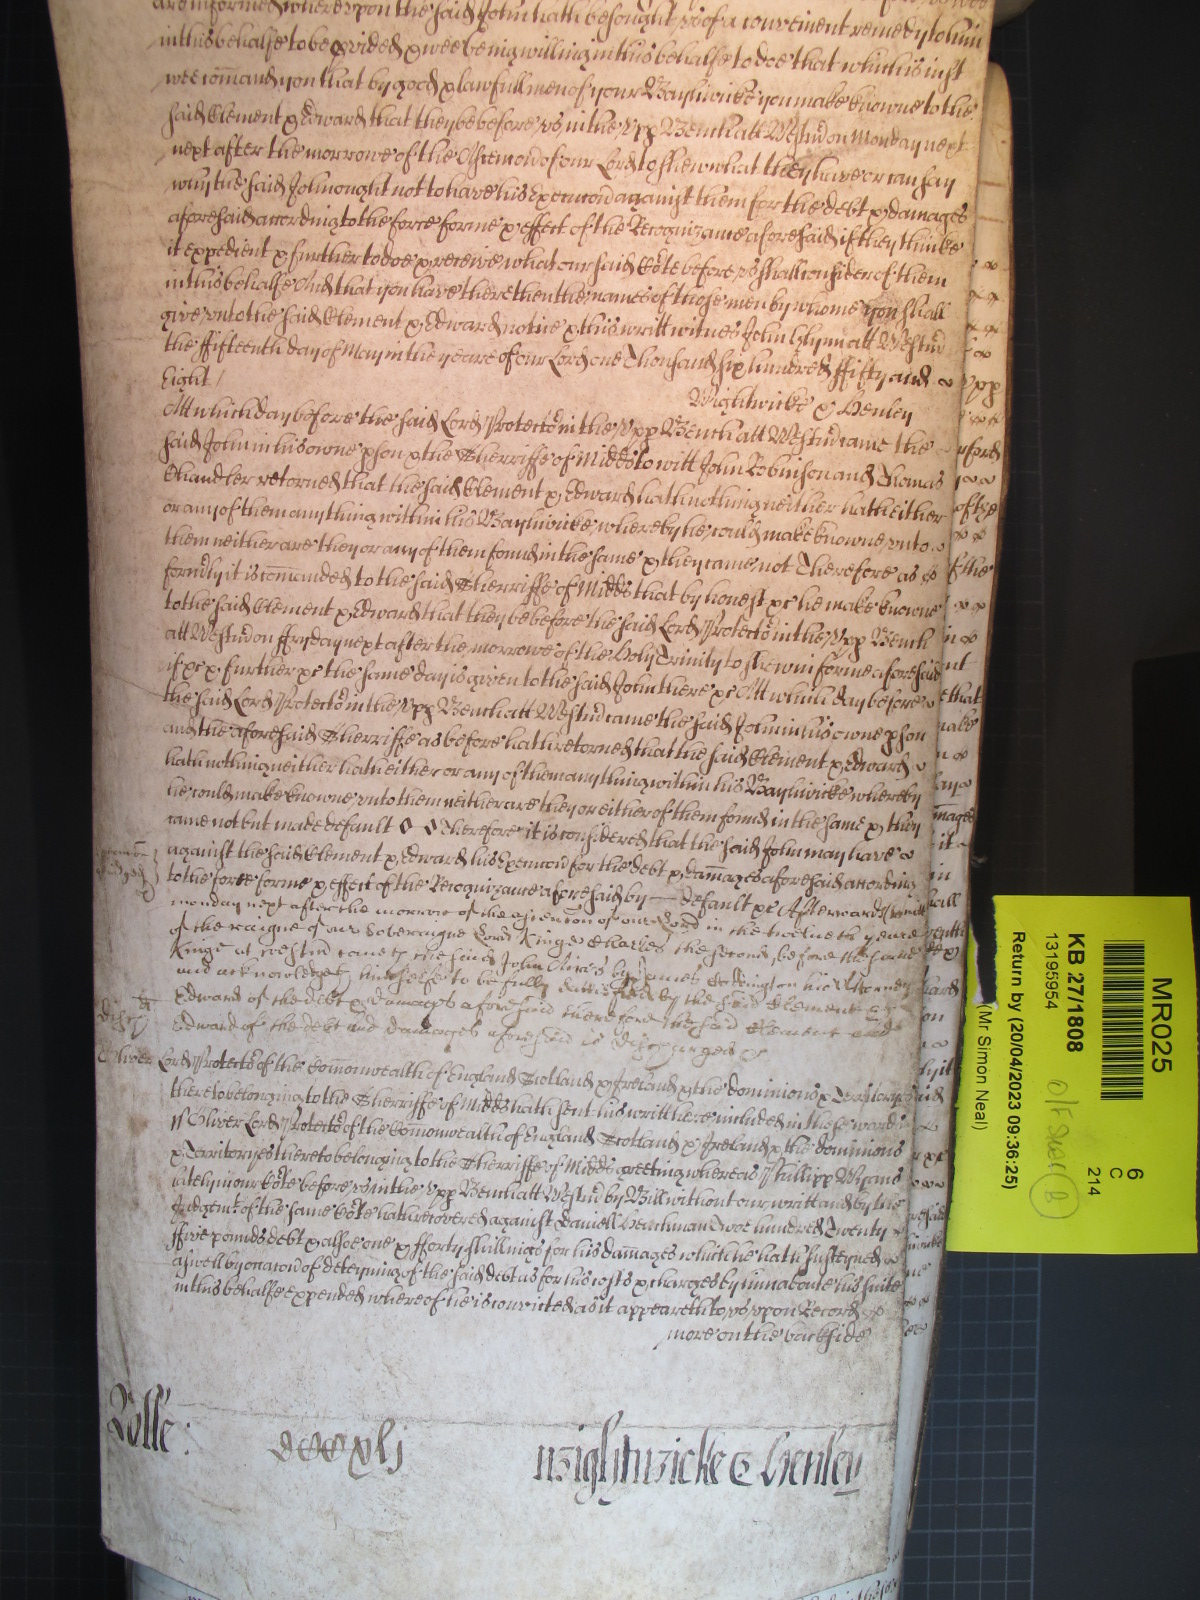 are informed whereupon the said John hath besought us of a convenient remedy to him
in this behalfe to be pvided & wee being willing in this behalfe to doe that which is iust
wee comand you that by good & lawfull men of your Baylywicke you make knowne to the
said Clement & Edward that they be before us in the Upp Bench att Westm on Monday next
next after the morrowe of the Ascencion of our Lord to shew what they have or can say
why the said John ought not to have his Execucon against them for the debt & damages
aforesaid according to the force forme & effect of the Recognizance aforesaid if they thinke
it expedient & further to doe & receive what our said Cote before us shall consider of them
in this behalfe And that you have there then the names of those men by whome you shall
give unto the said Clement & Edward notice & this writt witnes John Glynn att Westm
the ffifteenth day of May in the yeare of our Lord one Thousand six hundred ffifty and
Eight /
Wightwicke & Henley
Att which day before the said Lord Protector in the Upp Bench att Westm came the
said John in his owne pson & the Sherriffe of Midds to witt John Robinson and Thomas
Chandler retorned that the said Clement & Edward hath nothing neither hath either
or any of them any thing within his Baylywicke whereby he could make knowne unto
them neither are they or any of them found in the same & they came not Therefore as
formly it is comanded to the said Sherriffe of Midds that by honest &c he make knowne
to the said Clement & Edward that they be before the said Lord Protector in the Upp Bench
att Westm on ffryday next after the morrowe of the Holy Trinity to shew in forme aforesaid
if &c & further &c the same day is given to the said John there &c Att which day before
the said Lord Protector in the Upp Bench att Westm came the said John in his owne pson
and the aforesaid Sherriffe as before hath retorned that the said Clement & Edward
hath nothing neither hath either or any of them any thing within his Baylywicke whereby
he could make knowne unto them neither are they or either of them found in the same & they
came not but made default Therefore it is considered that the said John may have
against the said Clement & Edward his Execucon for the debt & damages aforesaid according
to the force forme & effect of the Recognizance aforesaid by default &c Afterwards
monday next after the morrow of the ascencon of our Lord in the twelveth yeare
of the raigne of our Soveraigne Lord Kinge Charles the second, before the same
Kinge at westm cometh the said John by James his Attorney
and acknowledgeth himselfe to be fully satisfied by the said Clement &
Edward of the debt & damages aforesaid therefore the said Clement and
Edward of the debt and damages aforesaid is discharged &c
Oliver Lord Protector of the Comonwealth of England Scotland & Ireland & the dominions & Territoryes
thereto belonging to the Sherriffe of Midds hath sent his writt here included in these words
Oliver Lord Protector of the Comonwealth of England Scotland & Ireland & the dominions
& Territoryes thereto belonging to the Sherriffe of Midds greeting whereas Phillipp
lately in our Cote before us in the Upp Bench att Westm by Bill without our writt and by the
Judgemt of the same Cote hath recovered against Daniell Henchman Two hundred Twenty
ffive pounds debt & alsoe one & fforty shillings for his damages which he hath susteyned
aswell by occacon of deteyning of the said debt as for his costs & charges by him aboute his suite
in this behalfe expended whereof he is convicted as it appeareth to us upon Record
more on the backside
Rolle:
Wightwicke & Henley
MR025
6
C
214
KB 27/1808
13195954
Return by (20/04/2023 09:36:25)
(Mr Simon Neal)